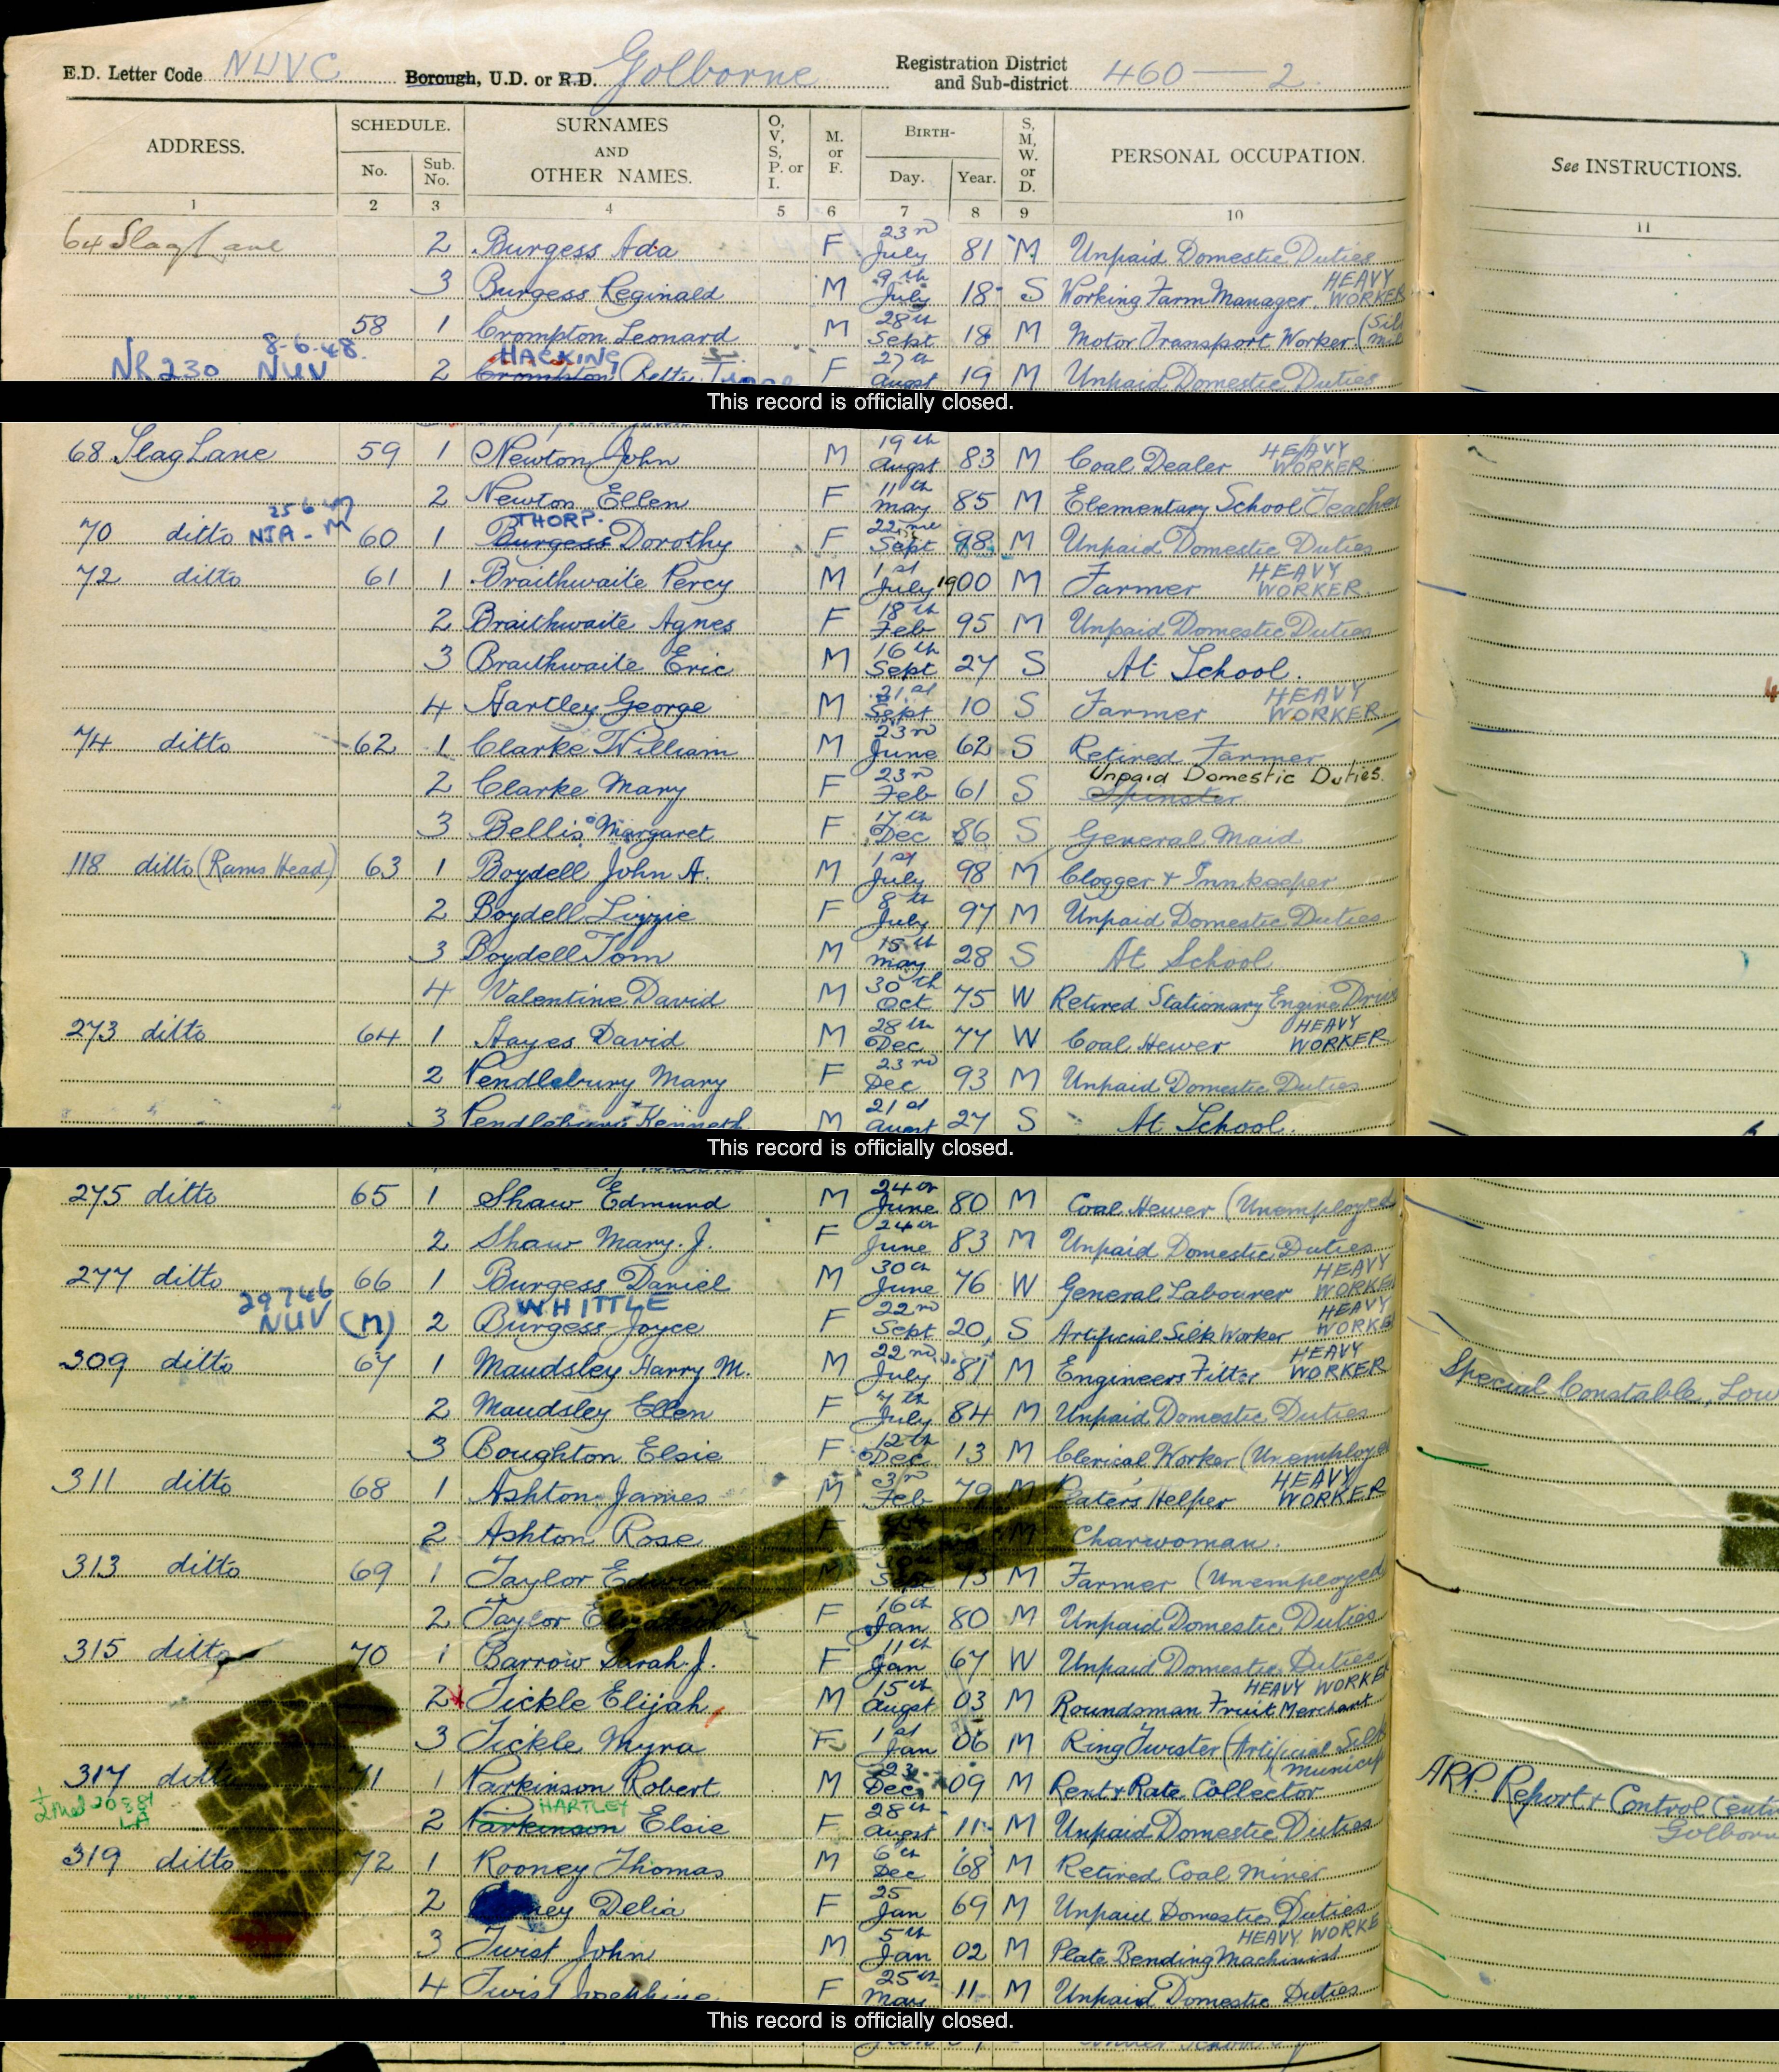 E.D. Letter Code NUVC Borough, U.D. or R.D. Golborne Registration District and Sub-district 460 — 2
ADDRESS. SCHEDULE. No. Sub. No. SURNAMES AND OTHER NAMES. O, V, S, P. or I. M. or F. BIRTH- Day. Year. S, M, W. or D. PERSONAL OCCUPATION. See INSTRUCTIONS.
1 2 3 4 5 6 7 8 9 10 11
64 Slag Lane 2 Burgess Ada F 23rd July 81 M Unpaid Domestic Duties
3 Burgess Reginald M 9th July 18 S Working Farm Manager. HEAVY WORKER
58 1 Crompton Leonard M 28th Sept 18 M Motor Transport Worker
NR 230 NUV 8-6-48. 2 HACKING Crompton F 27th Augst 19 M Unpaid Domestic Duties
This record is officially closed.
68 Slag Lane 59 1 Newton John M 19th Augst 83 M Coal Dealer HEAVY WORKER
2 Newton Ellen F 11th May 85 M Elementary School Teacher
70 ditto NIA - M 60 1 THORP. Burgess Dorothy F Sept 98 M Unpaid Domestic Duties
72 ditto 61 1 Braithwaite Percy M 1st July 1900 M Farmer HEAVY WORKER
2 Braithwaite Agnes F 18th Feb 95 M Unpaid Domestic Duties
3 Braithwaite Eric M 16th Sept 27 S At School.
4 Hartley George M 21st Sept 10 S Farmer HEAVY WORKER
74 ditto 62 1 Clarke William M 23rd June 62 S Retired Farmer
2 Clarke Mary F 23rd Feb 61 S Unpaid Domestic Duties. Spinster
3 Bellis Margaret F 17th Dec 86 S General Maid
118 ditto (Rams Head) 63 1 Boydell John A. M 1st July 98 M Clogger & Innkeeper
2 Boydell Lizzie F 8th July 97 M Unpaid Domestic Duties
3 Boydell Tom M 15th May 28 S At School
4 Valentine David M 30th Oct 75 W Retired Stationary Engine Driv
273 ditto 64 1 Hayes David M 28th Dec 77 W Coal Hewer HEAVY WORKER
2 Pendlebury Mary F 23rd Dec 93 M Unpaid Domestic Duties
3 Pendlebury Kenneth M 21st Augst 27 S At School.
This record is officially closed.
275 ditto 65 1 Shaw Edmund M 24th June 80 M Coal Hewer (Unemployed
2 Shaw Mary. J. F 24th June 83 M Unpaid Domestic Duties
277 ditto 66 1 Burgess Daniel M 30th June 76 W General Labourer HEAVY WORKE
29 7 46 NUV (M) 2 WHITTLE Burgess Joyce F 22nd Sept 20 S Artificial Silk Worker HEAVY WORKE
309 ditto 67 1 Maudsley Harry M. M 22nd July 81 M Engineers Fitter HEAVY WORKER Special Constable, Low
2 Maudsley Ellen F 7th July 84 M Unpaid Domestic Duties
3 Boughton Elsie F 12th Dec 13 M Clerical Worker (Unemployed
311 ditto 68 1 Ashton James M 3rd Feb 79 M Platers Helper HEAVY WORKER
2 Ashton Rose F M Charwoman.
313 ditto 69 1 Taylor Edwin M Sept 73 M Farmer (Unemployed
2 Taylor F 16th Jan 80 M Unpaid Domestic Duties
315 ditto 70 1 Barrow Sarah J. F 11th Jan 67 W Unpaid Domestic Duties
2 Tickle Elijah M 15th Augst 03 M Roundsman Fruit Merchant HEAVY WORKE
3 Tickle Myra F 1st Jan 06 M Ring Twister (Artificial Silk
317 ditto 71 1 Parkinson Robert M 23 Dec 09 M Rent & Rate Collector Municip A.R.P. Report & Control Centr Golborn
2 HARTLEY Parkinson Elsie F 28th Augst 11 M Unpaid Domestic Duties
319 ditto 72 1 Rooney Thomas M 6th Dec 68 M Retired Coal Miner
2 ney Delia F 25 Jan 69 M Unpaid Domestic Duties
3 Twist John M 5th Jan 02 M Plate Bending Machinist HEAVY WORKE
4 Twist F 25th 11 M Unpaid Domestic Duties
This record is officially closed.